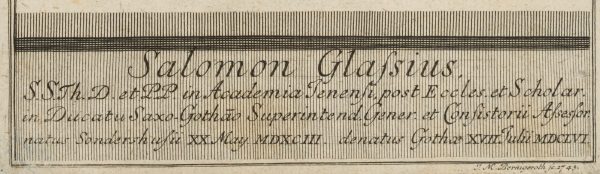 Salomon Glaſsius,
S.S.Th.D. et P.P. in Academia Jenenſi, post Eccles. et Scholar.
in Ducatu Saxo-Gothão Superintend. Gener. et Conſistorii Aſseſsor.
natus Sondershuſii XX. May MDXCIII. denatus Gothæ XVII. Julii MDCLVI.
J. M. Bernigeroth ſc. 1743.